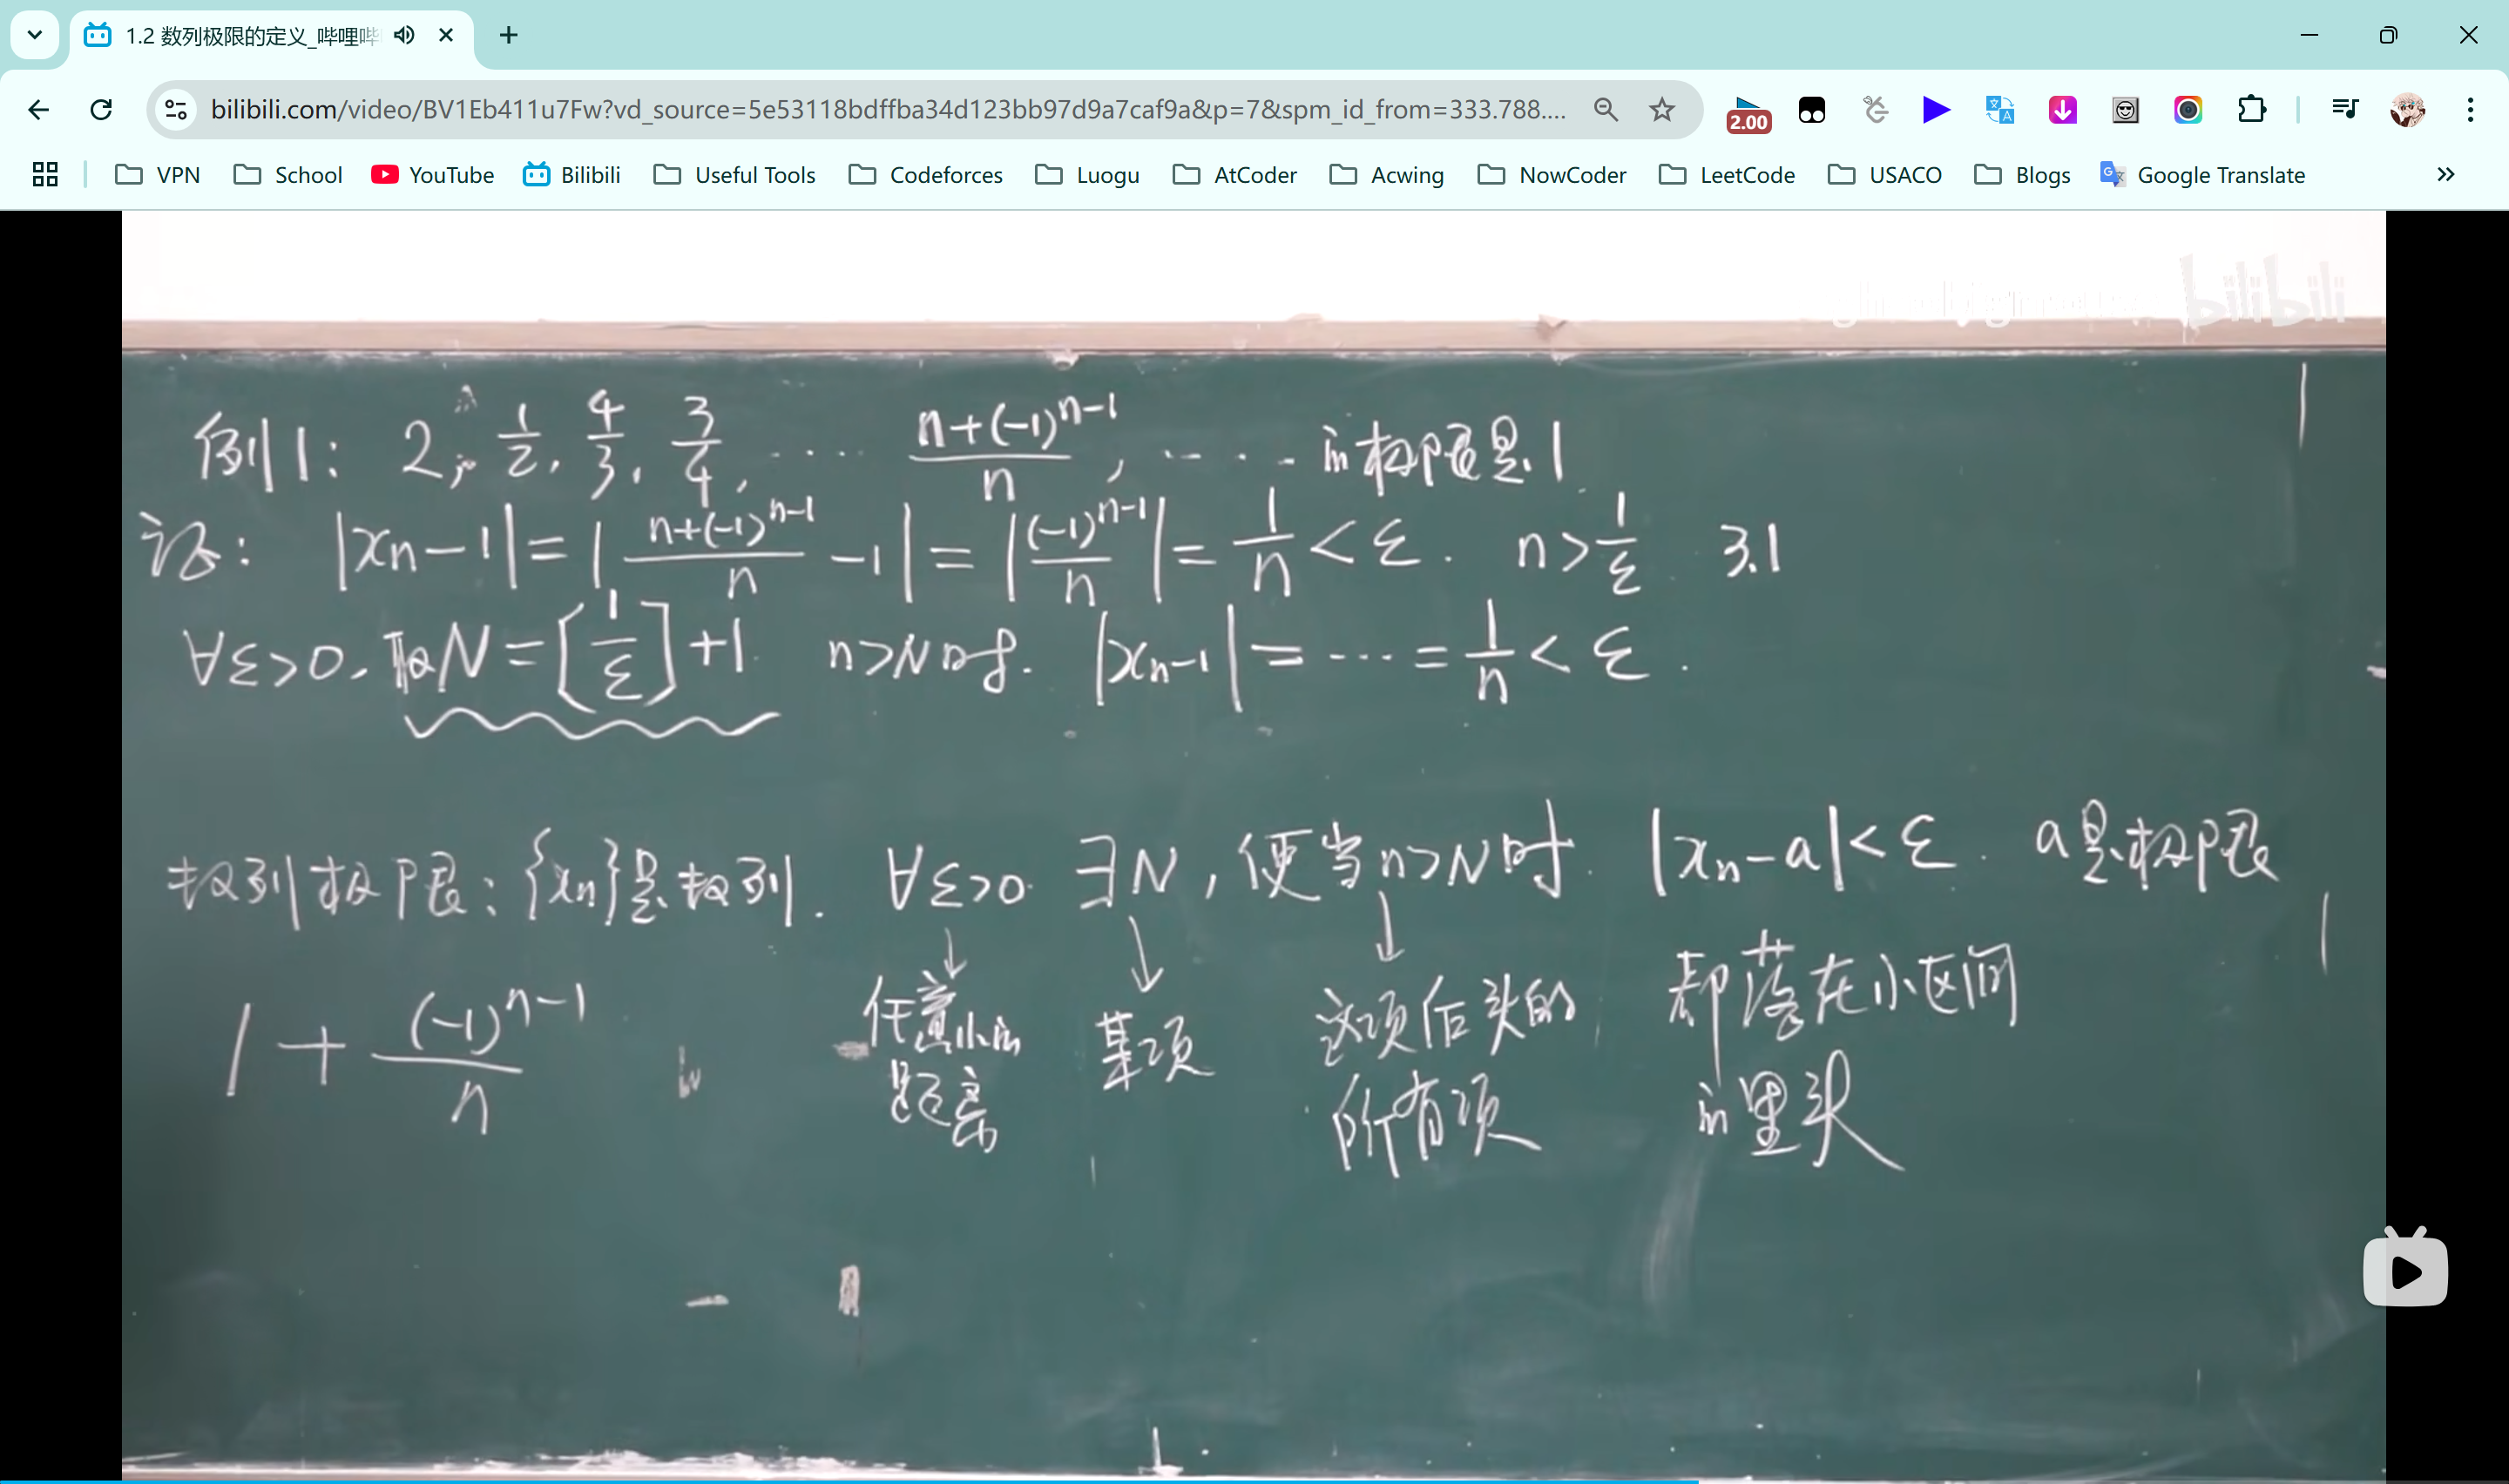 1.2 数列极限的定义_哔哩哔
bilibili.com/video/BV1Eb411u7Fw?vd_source=5e53118bdffba34d123bb97d9a7caf9a&p=7&spm_id_from=333.788....
2.00
VPN School YouTube Bilibili Useful Tools Codeforces Luogu AtCoder Acwing NowCoder LeetCode USACO Blogs Google Translate
bilibili
例1: 2, 1/2, 4/3, 3/4, ···· (n+(-1)^(n-1))/n, ···· 的极限是1
证: |xn-1|=|(n+(-1)^(n-1))/n -1|=|(-1)^(n-1)/n|=1/n<ε. n>1/ε 3.1
∀ε>0, 取N=[1/ε]+1 n>N时. |xn-1|=···=1/n<ε.
数列极限: {xn}是数列. ∀ε>0 ∃N, 使当n>N时. |xn-a|<ε. a是极限
↓ ↓ ↓
任意小的 某项 这项后头的 都落在小区间
距离 所有项 的里头
1+(-1)^(n-1)/n